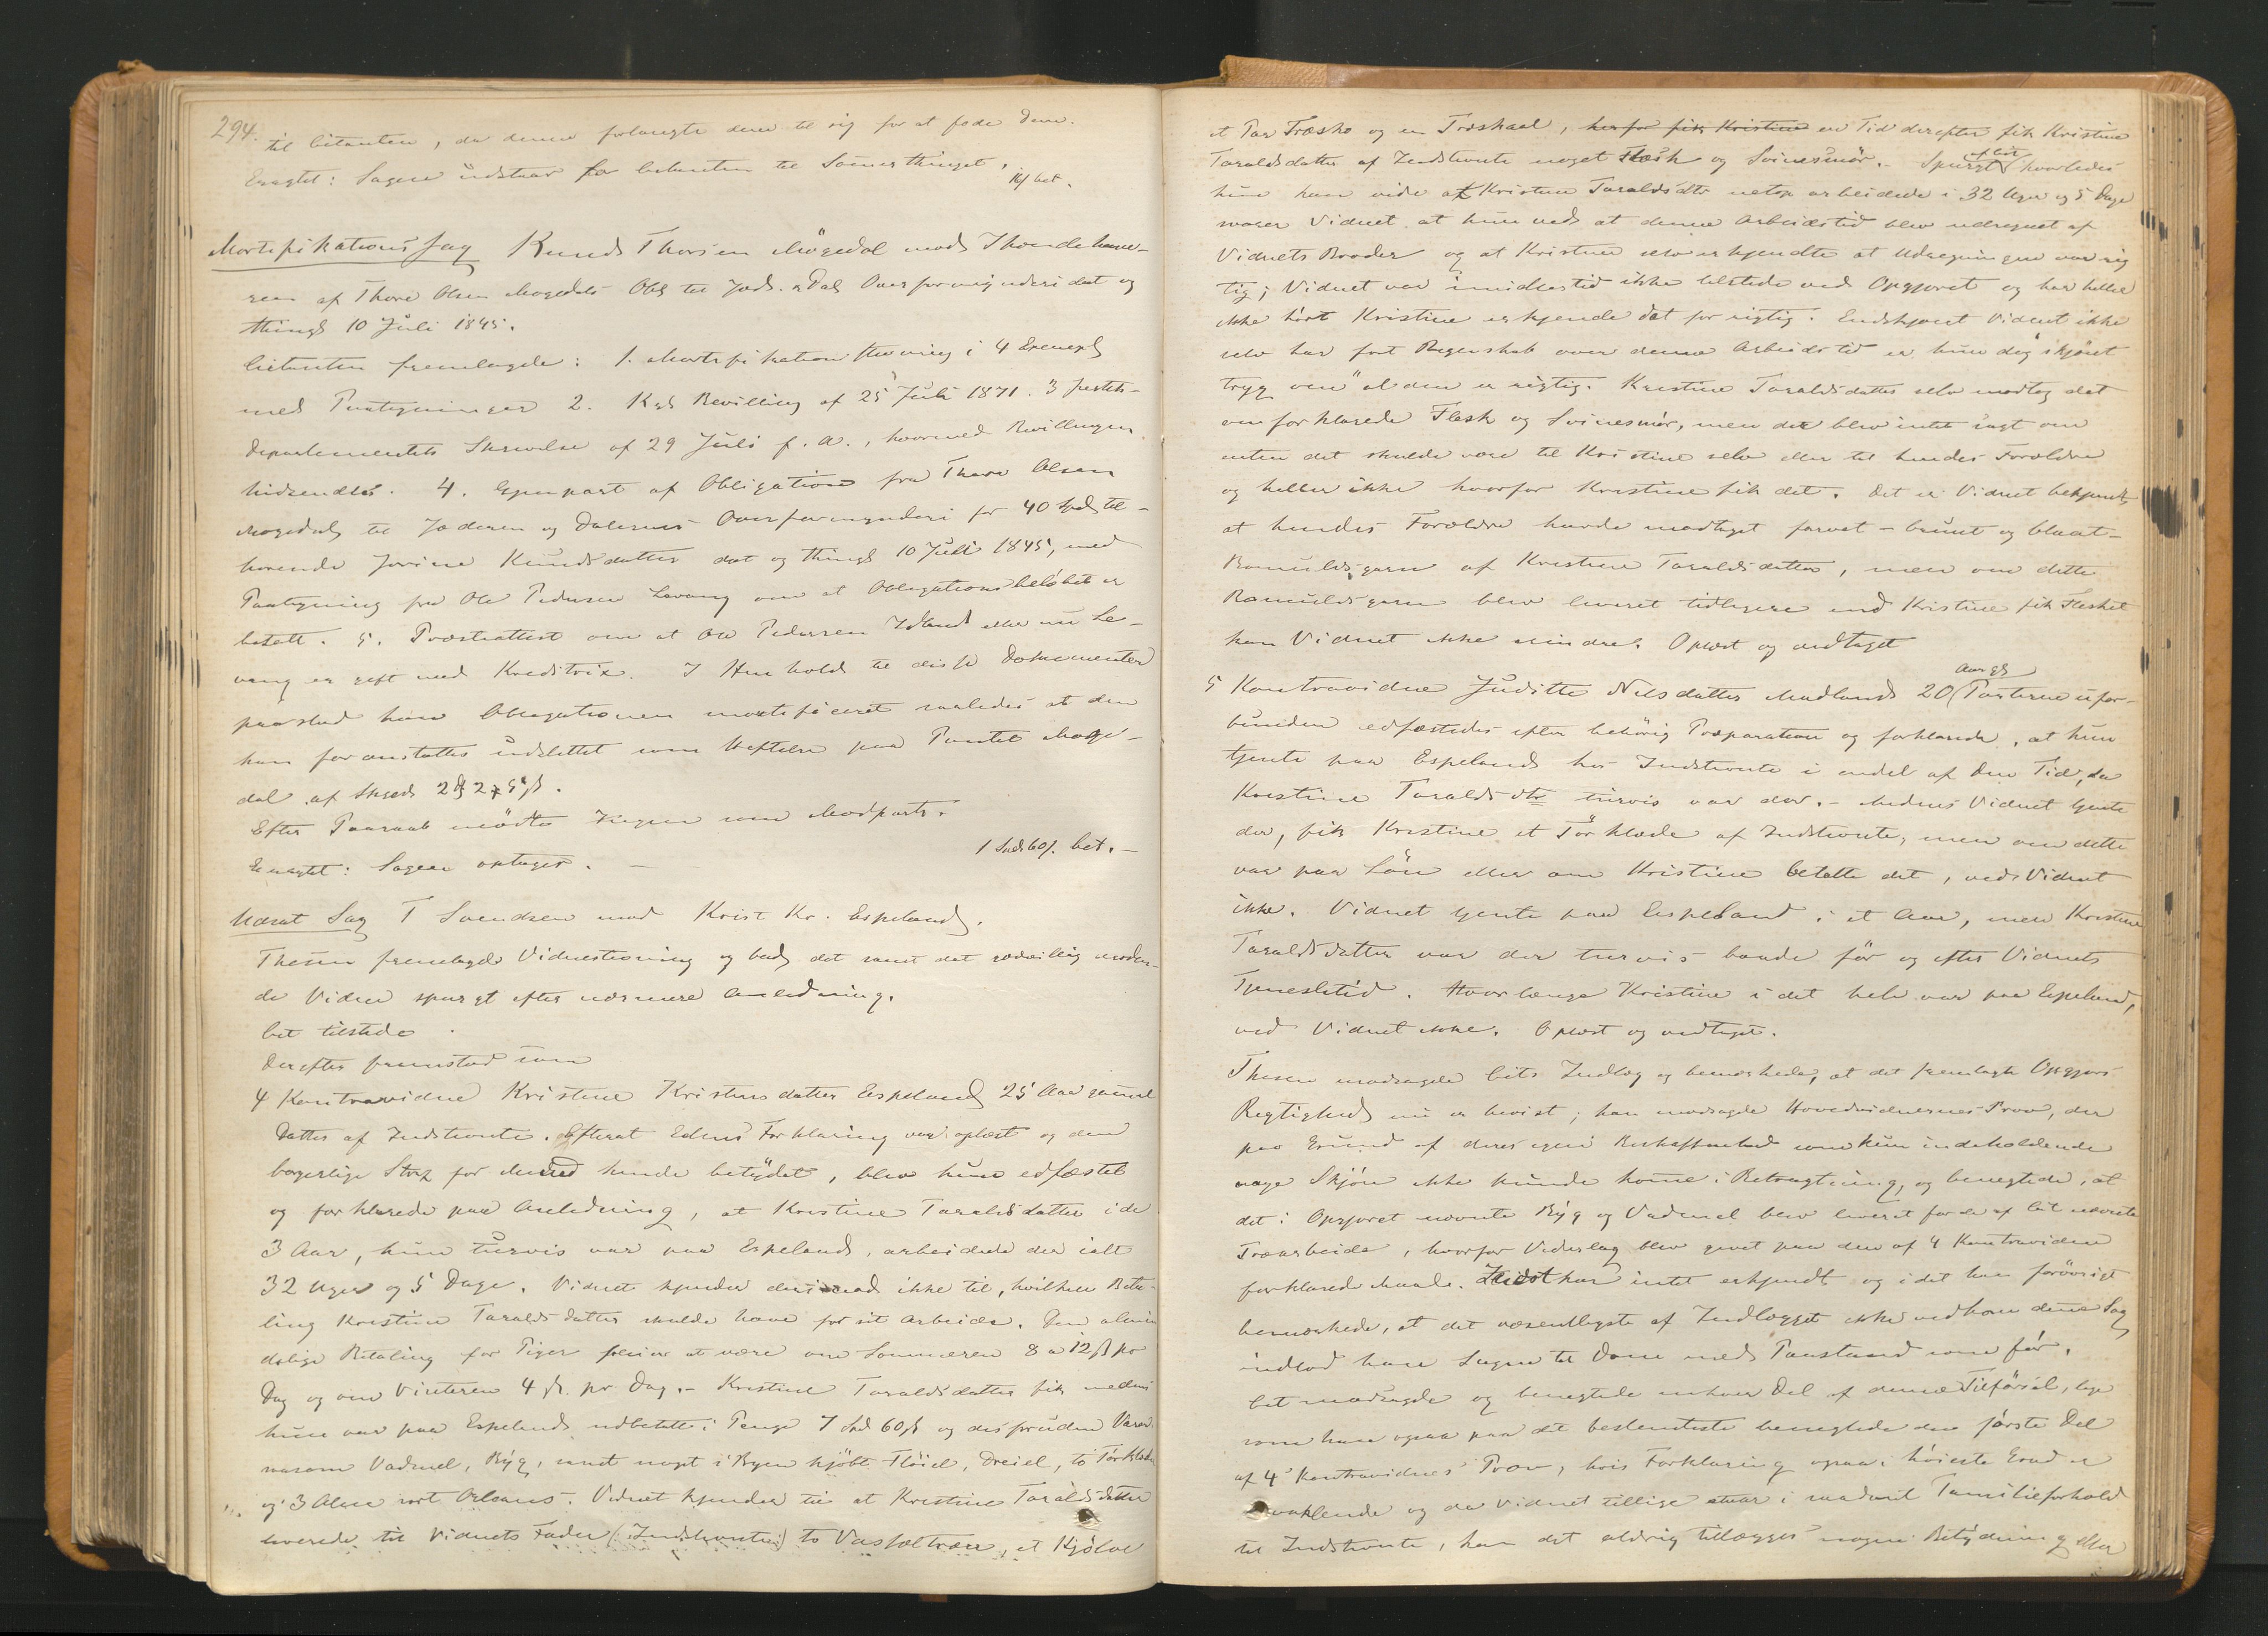 294.
til Citanten, da denne forlangte dem til sig for at føde dem.
Eragtet: Sagen udstaar for Citanten til Sommerthinget.
bet.
Mortifikations Sag Knud Thorsen Mögedal mod Ihændehave-
ren af Thore Olsen Mogedals Obl til Jæd. & Dal Overformynderi dat og
thingl 10 Juli 1845.
Citanten fremlagde: 1. Mortifikation stevning i 4 Exempl
med Paategninger 2. Kgl Bevilling af 25 Juli 1871. 3 Justits-
departementets Skrivelse af 29 Juli f. A., hvormed Bevillingen
hidsendtes. 4. Gjenpart af Obligation fra Thore Olsen
Mogedal til Jæderen og Dalernes Overformynderi for 40 Spd til-
hørende Jorine Knudsdatter dat og thingl 10 Juli 1845, med
Paategning fra Ole Pedersen Levang om at Obligationsbeløbet er
betalt. 5. Præsteattest om at Ole Pedersen eller nu Le-
vang er gift med Kreditrix. I Henhold til disse Dokumenter
paastod han Obligationen mortificeret saaledes at den
kan foranstaltes udslettet som Heftelse paa Pantet Moge-
dal af Skyld
Efter Paaraab mödte Ingen som Modpart.
Eragtet: Sagen optages. —
1 Spd 60 s. bet. —
Udsat Sag T Svendsen mod Krist Kr. Espeland.
Thesen fremlagde Vidnestevning og bad det samt det godvillig møden-
de Vidne spurgt efter nærmere Anledning.
Cit tilstede.
Derefter fremstod som
4 Kontravidne Kristine Kristensdatter Espeland 25 Aar gammel
Datter af Indstevnte. Efterat Edens Forklaring var oplæst og den
borgerlige Straf for Mened hende betydet, blev hun edfæstet
og forklarede paa Anledning, at Kristine Taraldsdatter i de
3 Aar, hun turvis var paa Espeland, arbeidede der ialt
32 Uger og 5 Dage. Vidnet kjender derimod ikke til, hvilken Beta-
ling Kristine Taraldsdatter skulde have for sit Arbeide. Den almin
delige Betaling for Piger pleier at være om Sommeren 8 a 12 s pr
Dag og om Vinteren 4 s. pr. Dag. – Kristine Taraldsdatter fik medens
hun var paa Espeland udbetalt i Penge 7 Spd 60 s og desforuden Varer
saasom Vadmel, Byg, samt noget i Byen kjöbt Flöiel, Dreiel, to Tørklæder
og 3 Alen sort Orleans. Vidnet kjender til at Kristine Taraldsdatter
leverede til Vidnets Fader (Indstevnte) to Vasseltrær, et Kjölve
et Par Træsko og en Træskaal, herfor fik Kristine en Tid derefter fik Kristine
Taraldsdatter af Indstevnte noget Flæsk og Svinesmör. – Spurgt af Cit hvorledes
hun kan vide at Kristine Taraldsdtr netop arbeidede i 32 Uger og 5 Dage
svarer Vidnet at hun ved at denne Arbeidstid blev udregnet af
Vidnets Broder og at Kristine selv erkjendte at Udregningen var rig
tig; Vidnet var imidlertid ikke tilstede ved Opgjöret og har heller
ikke hört Kristine erkjende det for rigtig. Endskjönt Vidnet ikke
selv har fört Regnskab over denne Arbeidstid er hun dog skjönt
tryg om at den er rigtig. Kristine Taraldsdatter selv modtog det
omforklarede Flesk og Svinesmör, men der blev intet sagt om
enten det skulde være til Kristine selv eller til hendes Forældre
og heller ikke hvorfor Kristine fik det. Det er Vidnet bekjendt
at hendes Forældre havde modtaget farvet – brunt og blaat –
Bomuldsgarn af Kristine Taraldsdatter, men om dette
Bomuldsgarn blev leveret tidligere end Kristine fik Flesket
kan Vidnet ikke mindes. Oplæst og vedtaget
5 Kontravidne Juditte Nilsdatter Madland 20 Aar gl Parterne ufor-
bunden edfæstedes efter behörig Præparation og forklarede, at hun
tjente paa Espeland hos Indstevnte i endel af den Tid, da
Kristine Taraldsdtr turvis var der. – Medens Vidnet tjente
der, fik Kristine et Törklæde af Indstevnte, men om dette
var paa Lön eller om Kristine betalte det, ved Vidnet
ikke. Vidnet tjente paa Espeland i et Aar, men Kristine
Taraldsdatter var der turvis baade för og efter Vidnets
Tjenestetid. Hvor længe Kristine i det hele var paa Espeland,
ved Vidnet ikke. Oplæst og vedtaget.
Thesen modsagde Cits Indlæg og bemærkede, at det fremlagte Opgjörs
Rigtighed nu er bevist; han modsagde Hovedvidnernes Prov, der
paa Grund af deres egen Beskaffenhed som kun indeholdende
vage Skjön ikke kunde komme i Betragtning, og benegtede, at
det i Opgjöret nævnte Byg og Vadmel blev leveret for de af Cit nævnte
Træarbeide, hvorfor Vederlag blev givet paa den af 4 Kontravidne
forklarede Maade. Indst har intet erkjendt og idet han forövrigt
bemærkede, at det væsentligste af Indlægget ikke vedkom denne Sag
indlod han Sagen til Dom med Paastand som för.
Cit modsagde og benegtede enhver Del af denne Tilförsel, lige
som han ogsaa paa det bestemteste benegtede den förste Del
af 4 Kontravidnes Prov, hvis Forklaring ogsaa i höieste Grad er
vaklende og da Vidnet tillige staar i saadant Familieforhold
til Indstevnte, kan det aldrig tillægges nogen Betydning eller